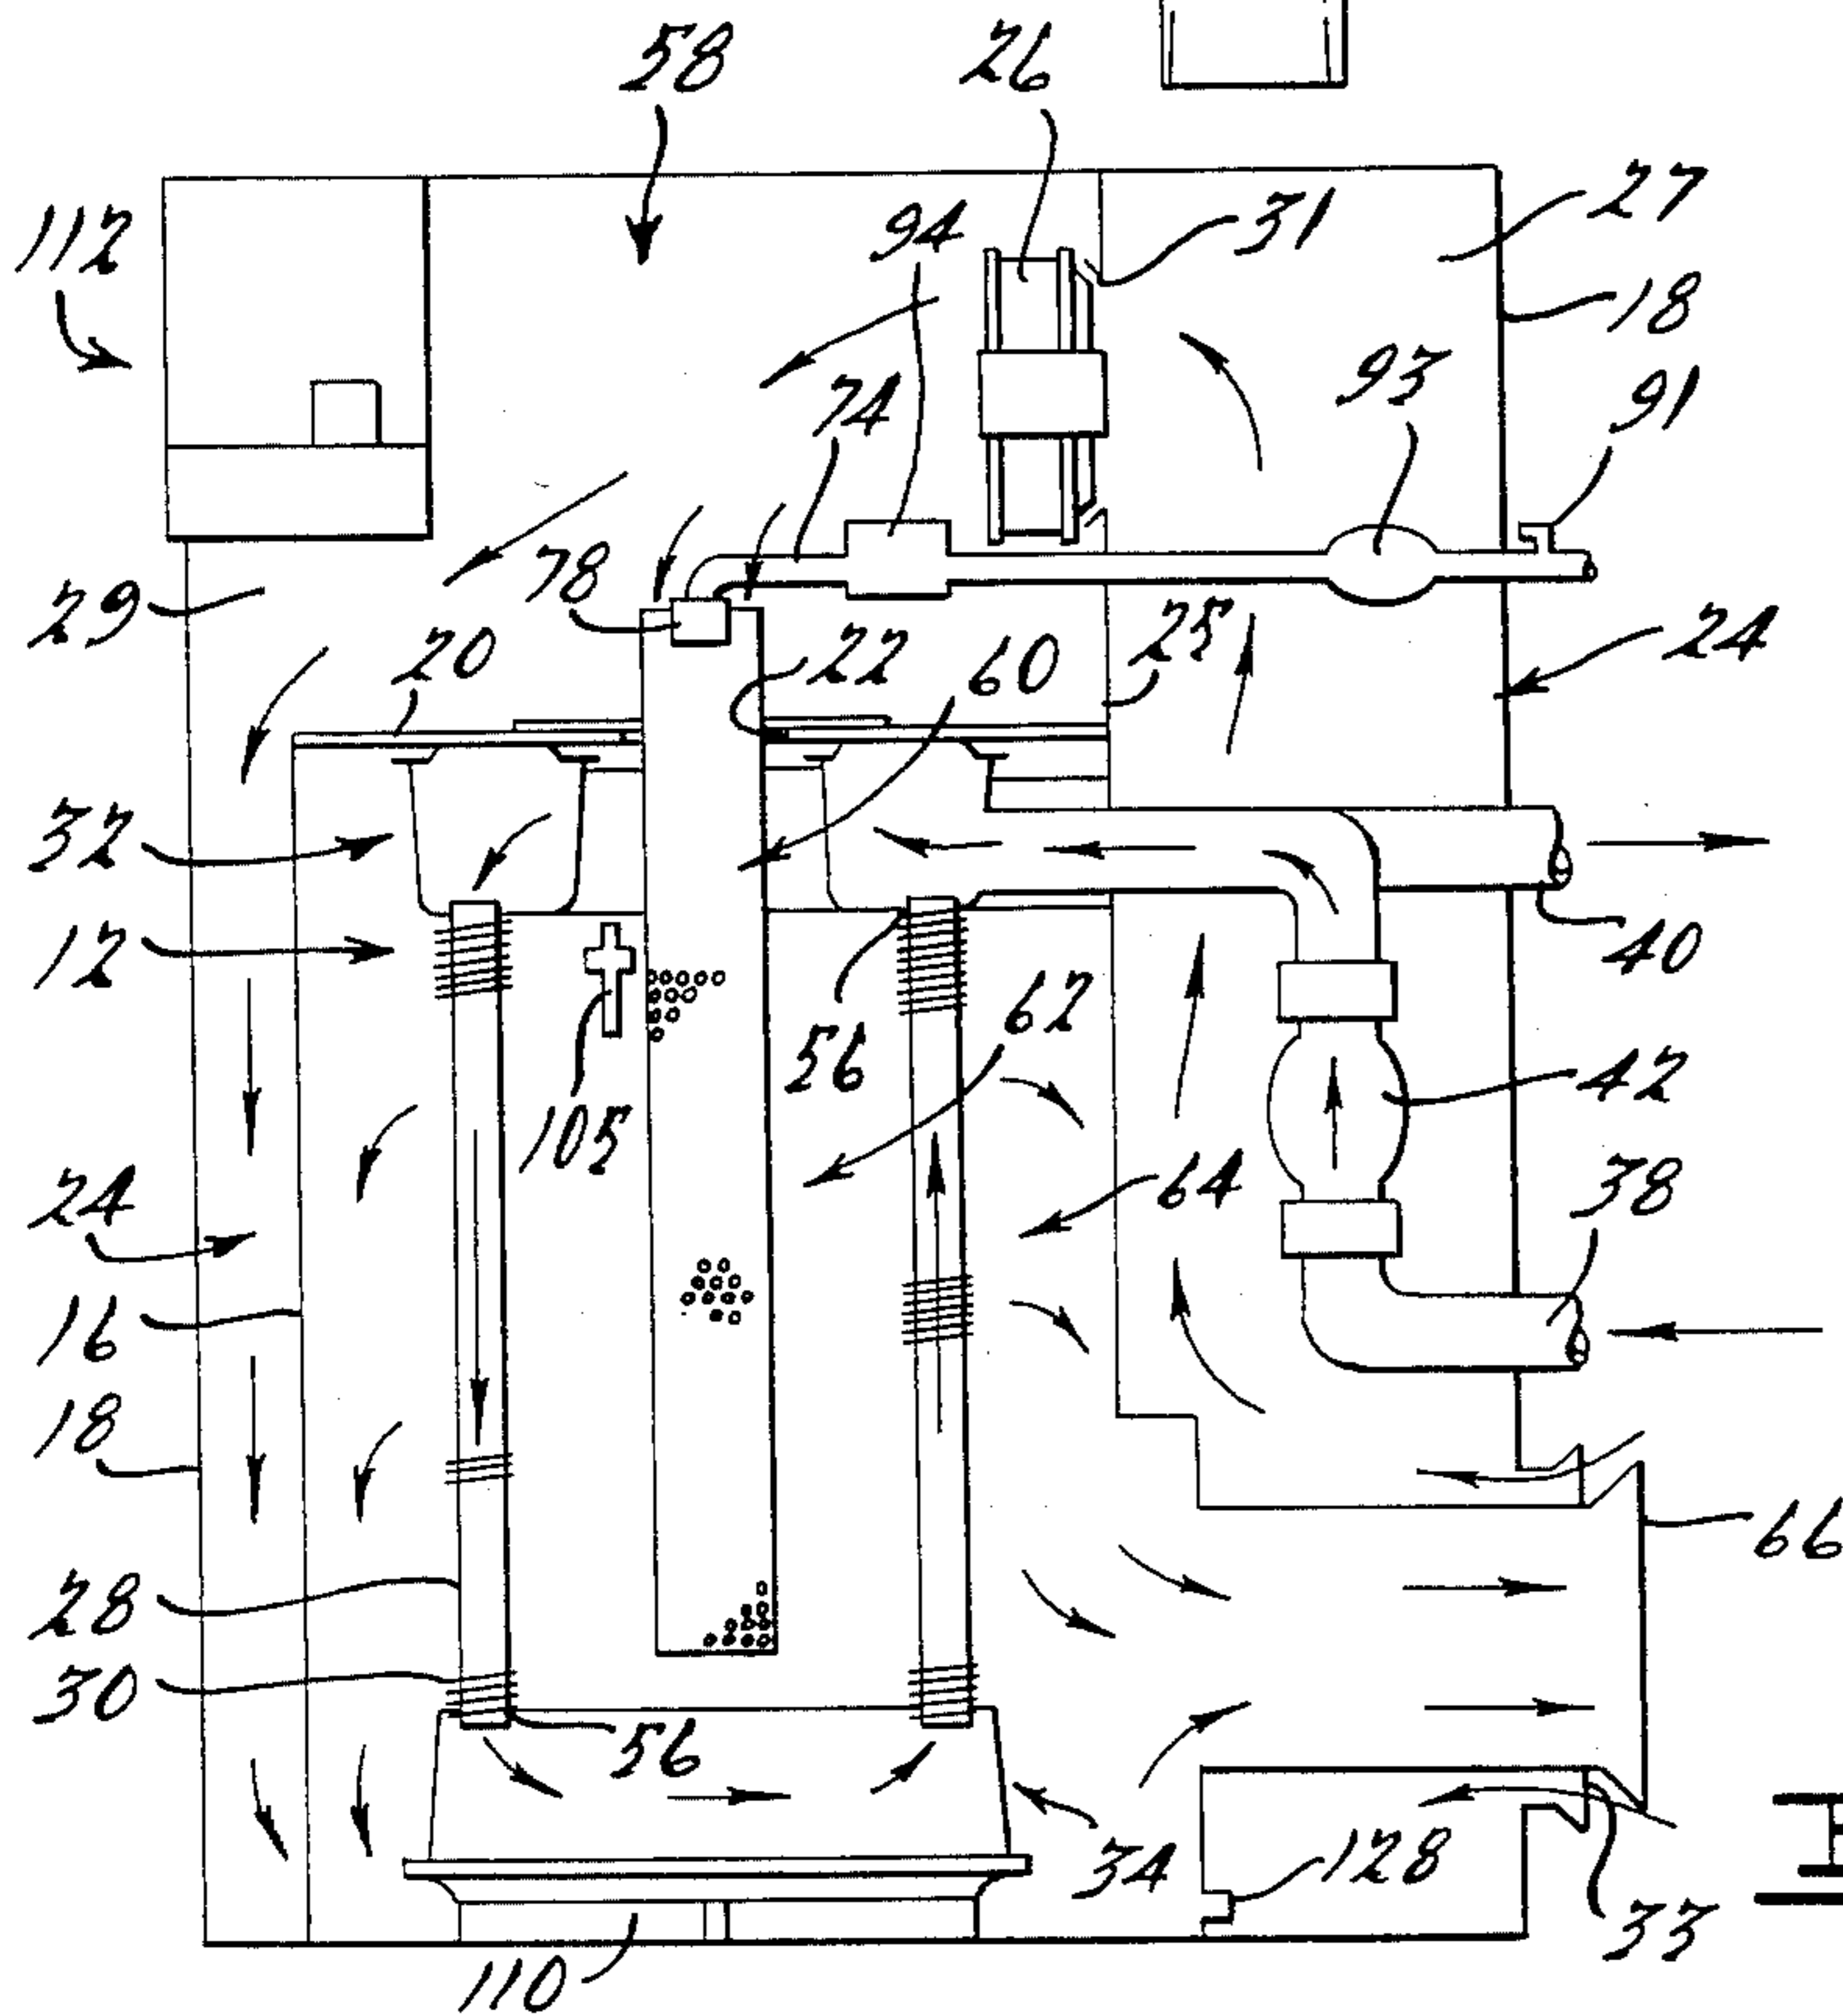 58
26
27
112
94
31
18
93
91
74
29
78
20
22
60
25
24
32
12
40
56
62
105
42
24
64
38
16
18
66
28
30
56
34
128
33
110